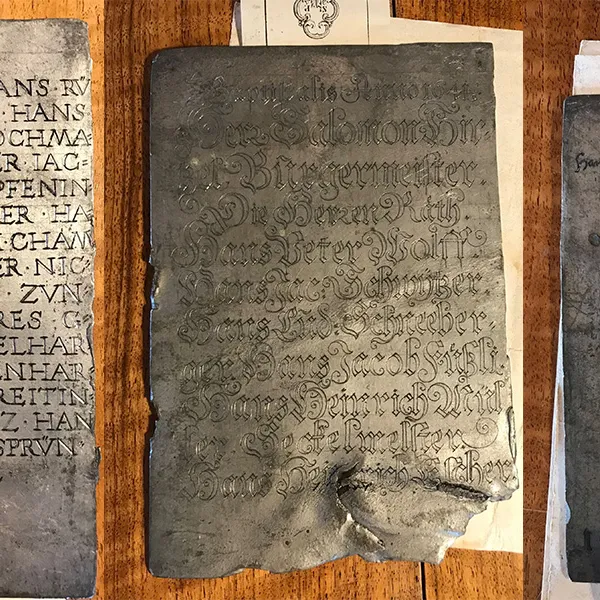 ANS · RÜ
· HANS
OCHMA
ER · IAC=
PFENIN
ER · HA
· CHAM
ER · NIC
· ZVN
RES · G
ELHAR
ENHAR
REITIN
Z · HAN
SPRÜN ·
Herr Salomon Hir-
zel Bürgermeister.
Die Herren Räth.
Hans Peter Wolff.
Hans Jac: Schwÿtzer
Hans Jacob Füßli.
Hans Heinrich Mül
ler Seckelmeister.
Hans Heinrich Escher
Han